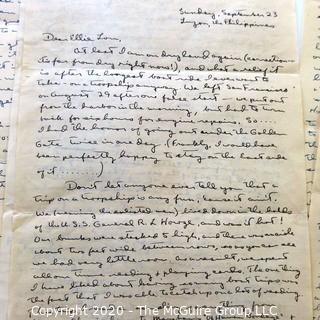 Sunday, September 23
Luzon, the Philippines
Dear Ellie Lou,
At last I am on dry land again (correction -
its far from dry right now!), and what a relief it
is after the longest boat ride I ever want to
take in a troopship anyway. We left San Francisco
on August 29 after one false start - we put out
from the harbor in the morning, but had to turn
back for six hours for engine repairs. So....
I had the honor of going out under the Golden
Gate twice in one day (Frankly, I would have
been perfectly happy to stay on the east side
of it ..........)
Don't let anyone ever tell you that a
trip on a troopship is any fun, cause it ain't.
We (meaning the enlisted men) lived down in the holds
of the U.S.S. General R. L. Howze, and was it hot!
Our bunks were stacked 4 high, and there were aisle
about two feet wide between rows, so you can see
we had very little room. As a result, we spent
all our time reading & playing cards. The one thing
I have liked about having some boat trips was
the fact that I was able to take up lots of reading
Copyright © 2020 - The McGuire Group, LLC